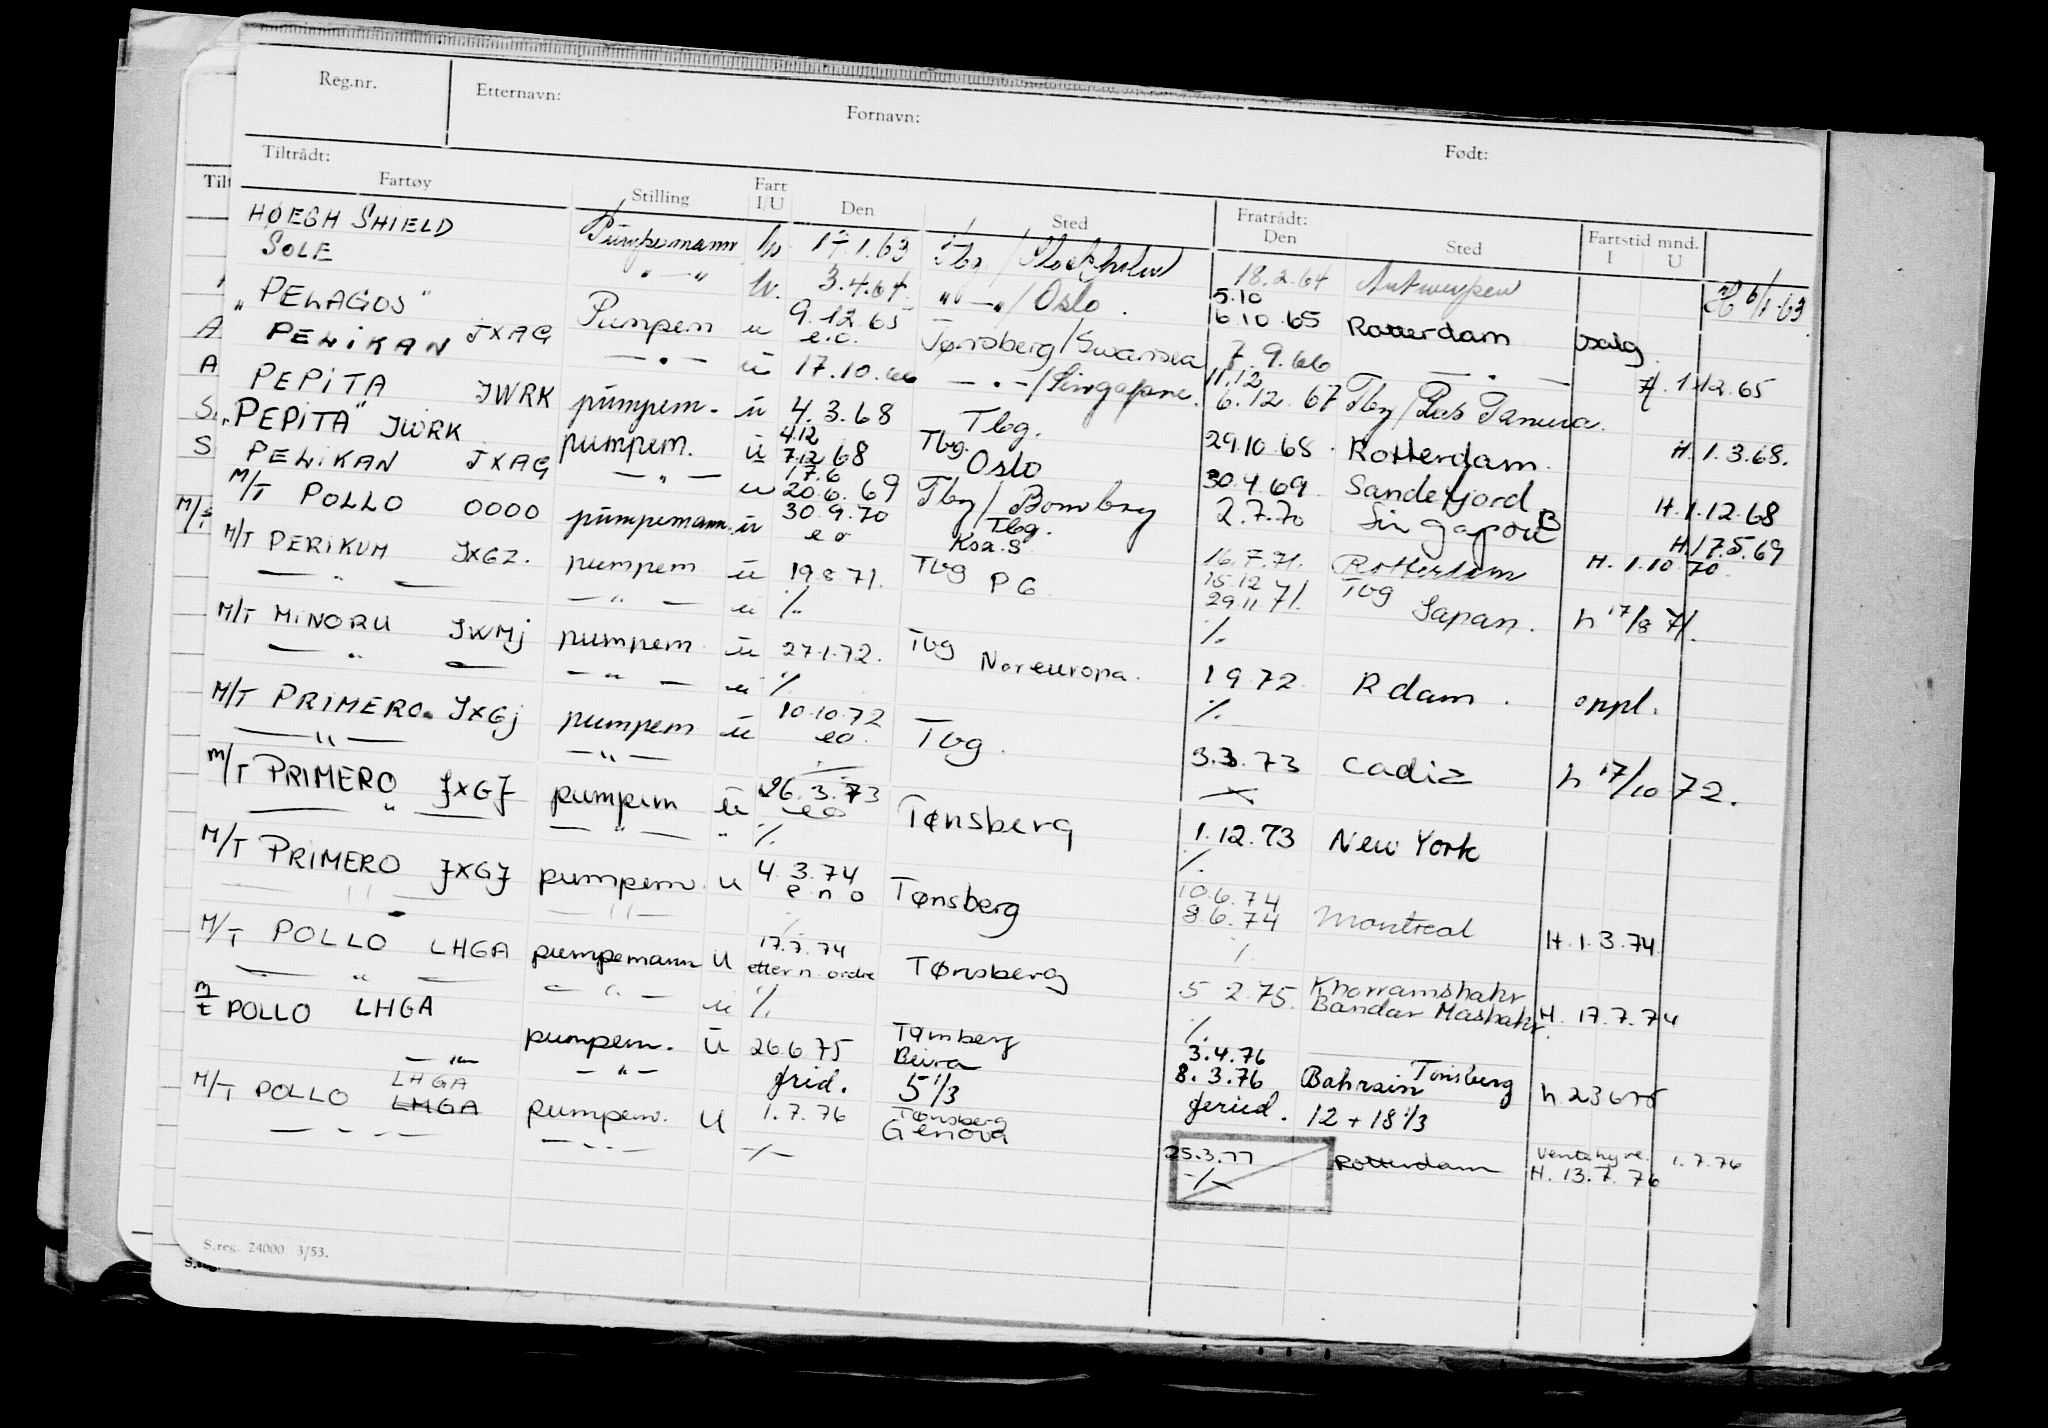 Reg.nr. Etternavn: Fornavn: Født:
Tiltrådt: Fratrådt:
Fartøy Stilling Fart I/U Den Sted Den Sted Fartstid mnd. I U
HØEGH SHIELD Pumpemann 17.1.63 Tbg / Stockholm 18.2.64 Antwerpen 6/1-63
SOLE — " — 3.4.64 " — " / Oslo. 5.10 6.10.65 Rotterdam salg.
"PELAGOS" JXAG Pumpem u 9.12.65 e.o. Tønsberg/Swansea 7.9.66 — " — H. 1.12.65
PELIKAN — " — u 17.10.66 — " — /Singapore. 11.12 6.12.67 Tbg/Ras Tanura.
PEPITA JWRK pumpem. u 4.3.68 Tbg. 29.10.68. Rotterdam. H. 1.3.68.
"PEPITA" JWRK pumpem. u 4.12 7.12 68 Tbg. Oslo 30.4.69. Sandefjord H. 1.12.68
PELIKAN JXAG — " — u 17.6 20.6.69 Tbg / Bombay 2.7.70 Singapore H. 17.5.69
M/T POLLO 0000 pumpemann. u 30.9.70 e o Tbg. 16.7.71. Rotterdam H. 1.10 70.
M/T PERIKUM JXGZ. pumpem u 19.8.71. Tbg P G 15.12 29.11 71. Tbg Japan. h 17/8 71.
— " — — " — u %. %.
M/T MINORU JWMJ pumpem u 27.1.72. Tbg Nordeuropa. 1 9 72 R dam. oppl.
— " — — " — u %. %.
M/T PRIMERO JXGJ pumpem u 10.10.72 eo. Tbg. 3.3.73 Cadiz h 17/10 72.
— " — — " —
M/T PRIMERO JXGJ pumpem u 26.3.73 eo Tønsberg 1.12.73 New York
— " — — " — " %. %.
M/T PRIMERO JXGJ pumpem. u 4.3.74 e n o Tønsberg 10.6.74 8.6.74 Montreal H. 1.3.74
— " — — " — %. %.
M/T POLLO LHGA pumpemann u 17.7.74 etter n. ordre Tønsberg 5 2.75. Khorramshahr Bandar Mashahr. H. 17.7.74
— " — — " — u %. %.
M/T POLLO LHGA pumpem. u 26 6 75 Tønsberg Beira 3.4.76 8.3.76 Bahrain Tønsberg h 23 6 75
— " — — " — frid. 5 1/3 feried. 12 + 18 1/3
M/T POLLO LHGA LHGA pumpem. u 1.7.76 Tønsberg Genova 25.3.77 Rotterdam Ventehyre. 1.7.76 H. 13.7.76
— " — — " — -/- -/-
S.reg. 24000 3/53.